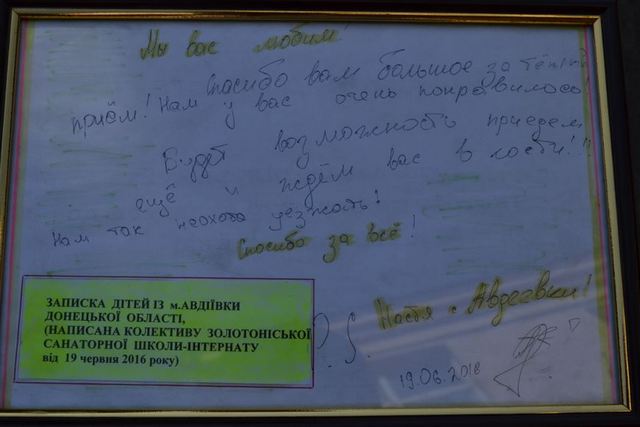 Мы вас любим!
Спасибо вам большое за тёплый
приём! Нам у вас очень понравилось!
Будет возможность приедем
ещё и ждём вас в гости!!!
Нам так неохота уезжать!
Спасибо за всё!
Настя с Авдеевки!
P.S.
19.06.2016
ЗАПИСКА ДІТЕЙ ІЗ м.АВДІЇВКИ
ДОНЕЦЬКОЇ ОБЛАСТІ,
(НАПИСАНА КОЛЕКТИВУ ЗОЛОТОНІСЬКОЇ
САНАТОРНОЇ ШКОЛИ-ІНТЕРНАТУ
від 19 червня 2016 року)